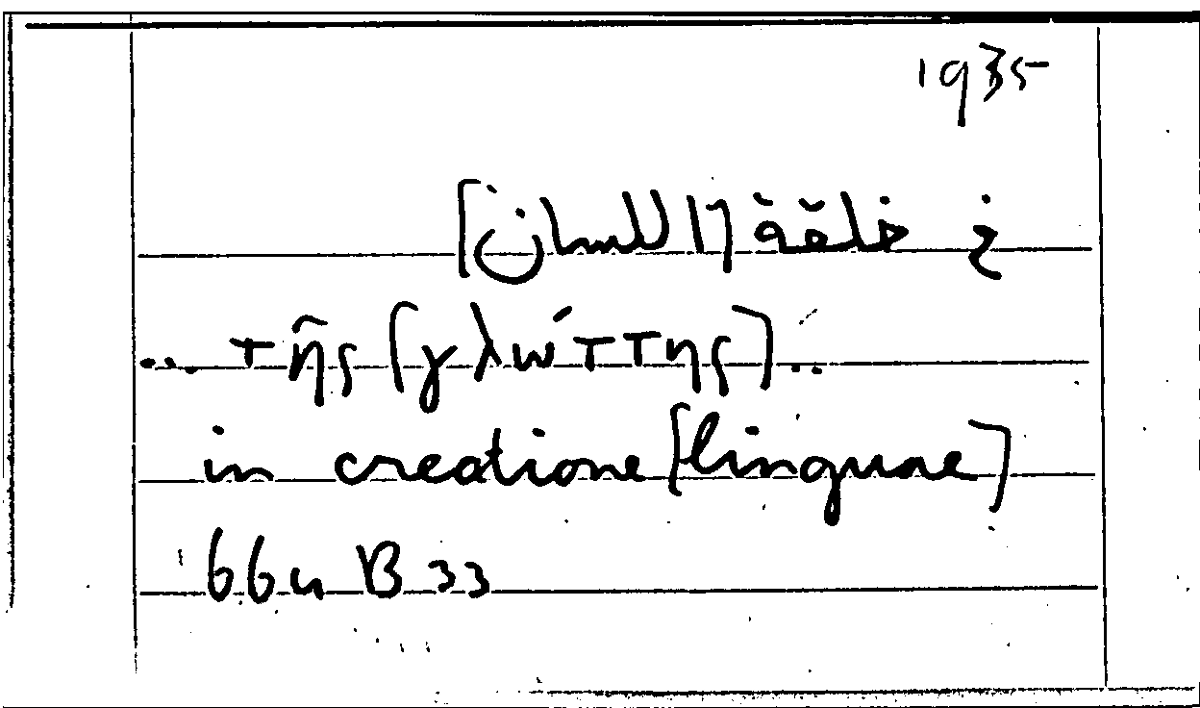 1935
في خلقة [اللسان]
... τῆς [γλώττης] ..
in creatione [linguae]
664 B 33